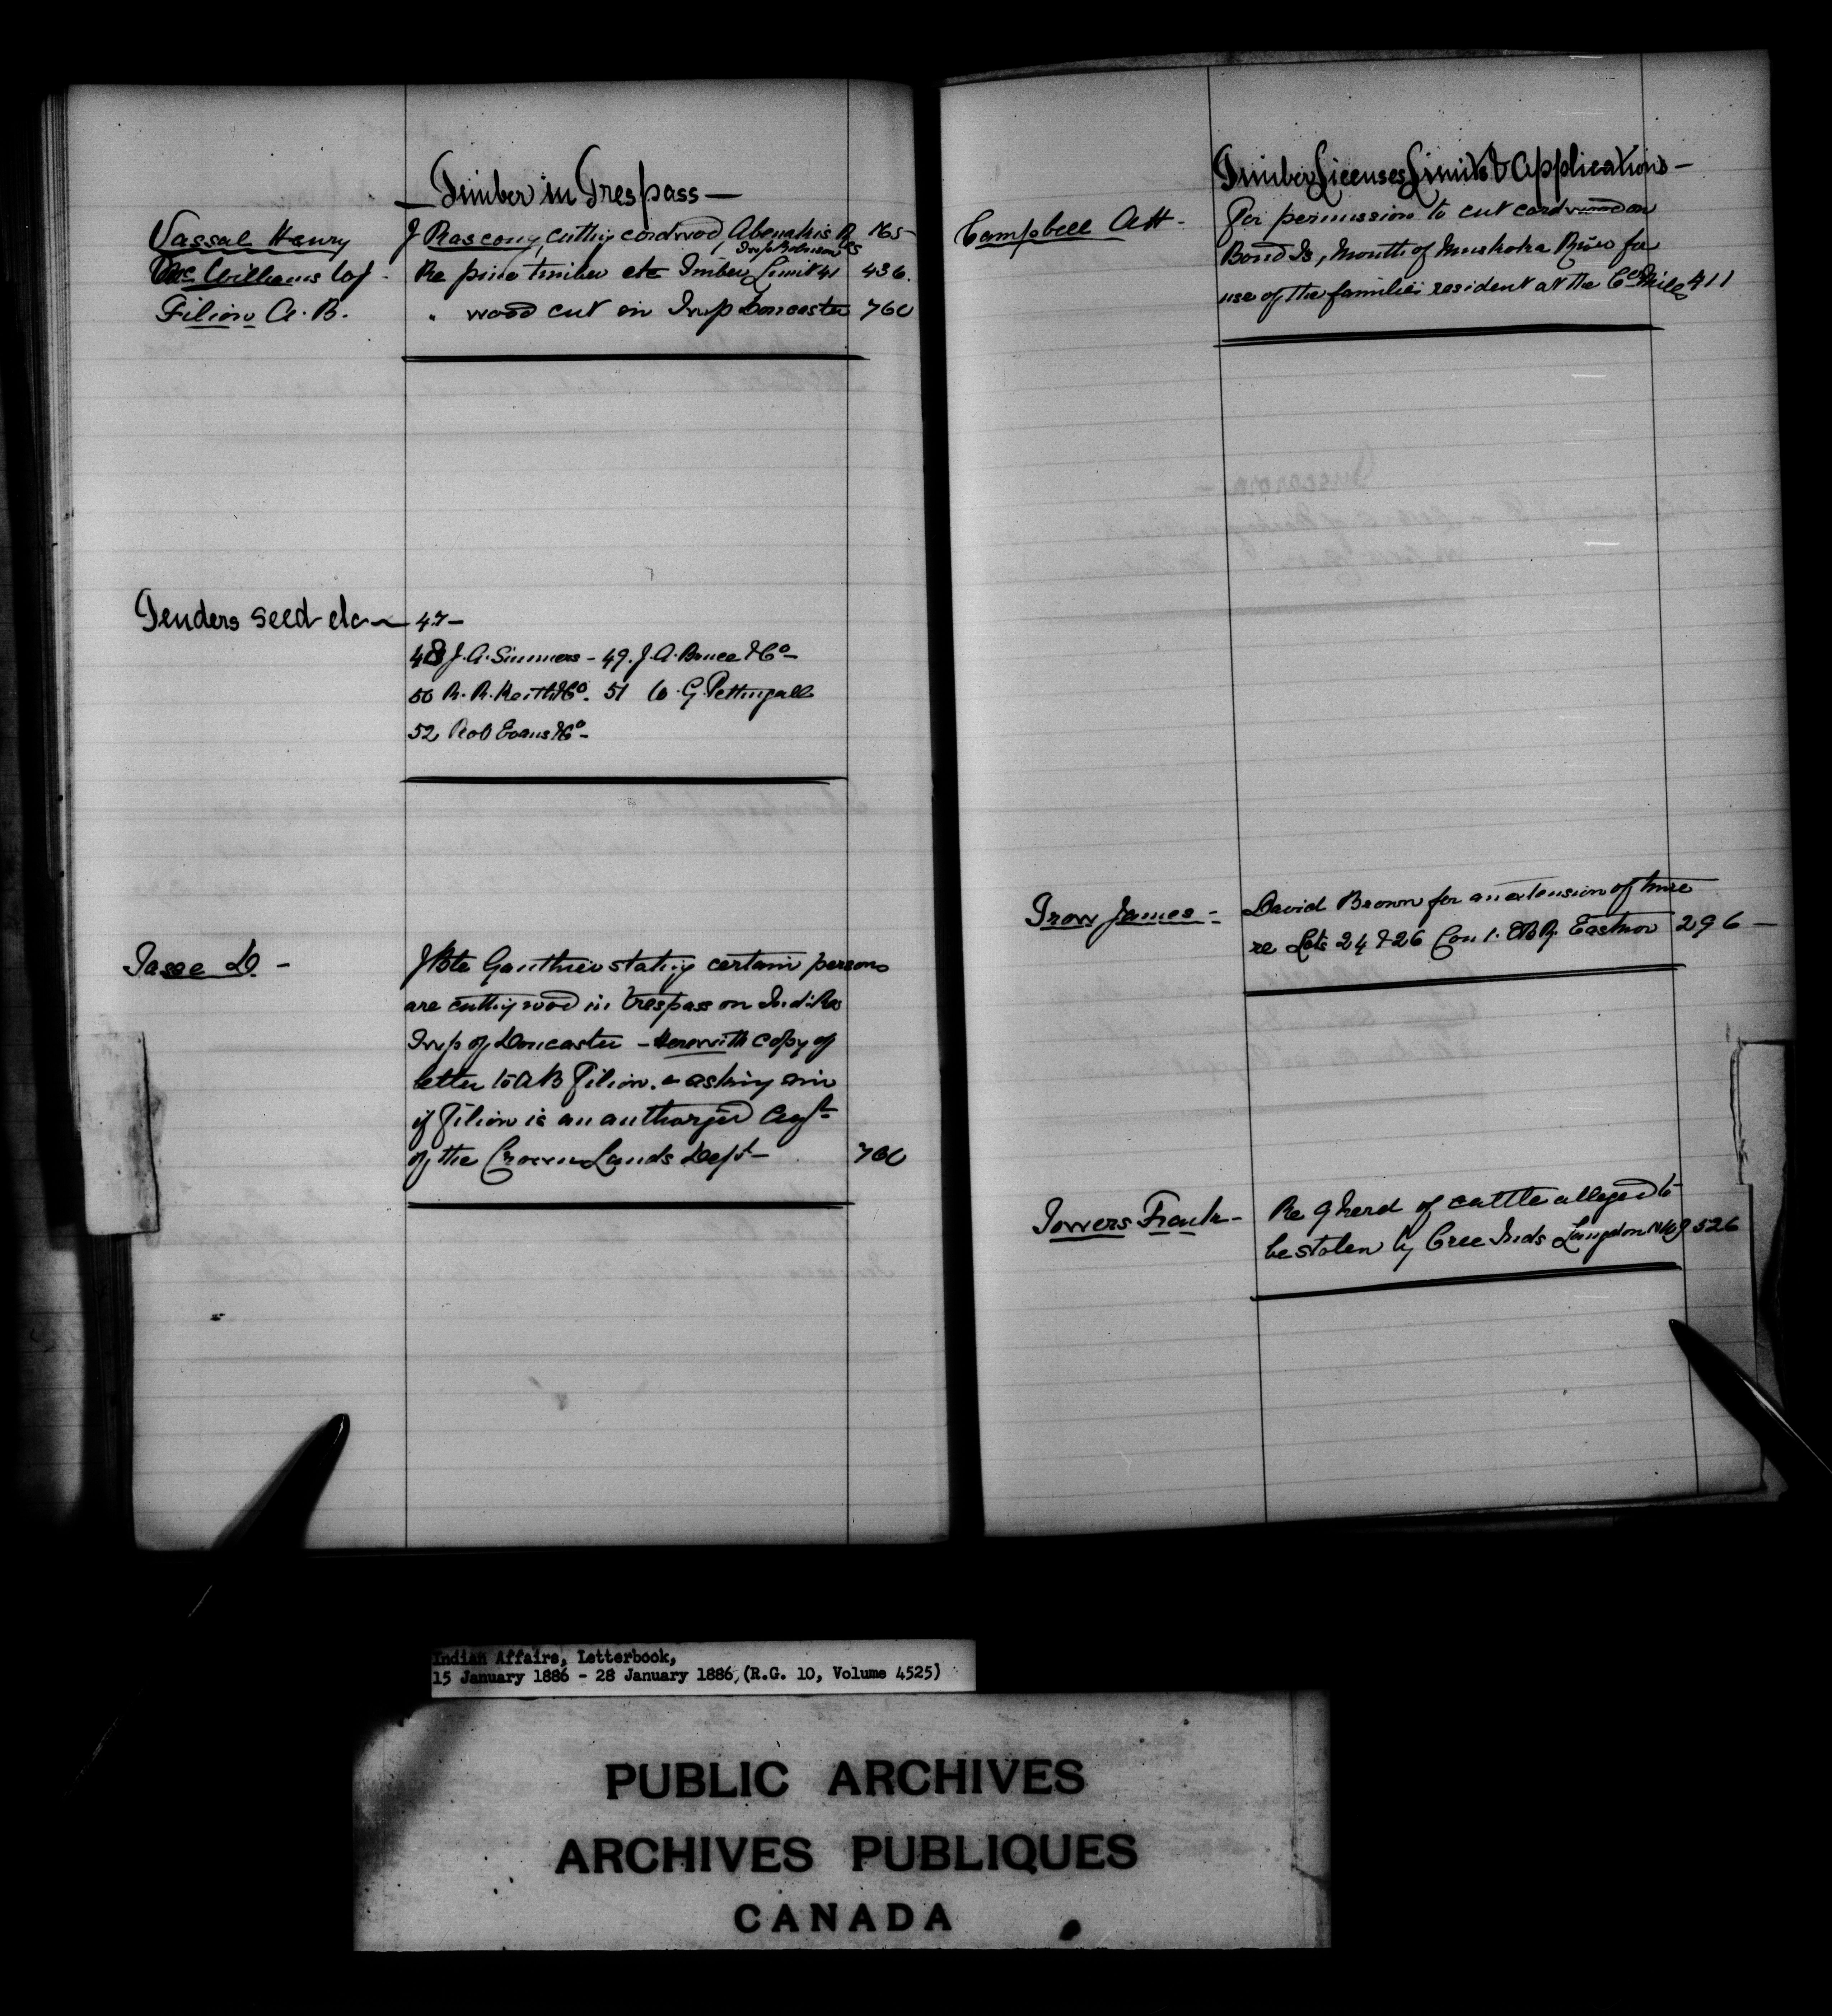 — Timber in Trespass —
Vassal Henry J Rascony, cutting cordwood, Abenakis R 165
Twp Robinson
McWilliams Re pine timber etc Timber Limit 41 436.
Filion A. B. " wood cut in Twp Doncaster 760
Tenders seed etc — 47 —
48 J. A. Simmers - 49. J. A. Bruce & Co -
50 R. R. Keith & Co. 51 G. Pettingall
52 Rob Evans & Co -
Tasse D. - J Bte Gauthier stating certain persons
are cutting wood in trespass on Ind: Res
Twp of Doncaster - Herewith copy of
letter to A B Filion. & asking him
if Filion is an authorized Agt
of the Crown Lands Dept - 760
Timber Licenses Limits & Applications -
Campbell A H - For permission to cut cordwood on
Bond Is, Mouth of Muskoka River for
use of the families resident at the Cos Mills 411
Trow James - David Brown for an extension of time
re Lots 24 & 26 Con 1. EBR. Eastnor 296 —
Towers Frank - Re 9 herd of cattle alleged to
be stolen by Cree Inds Langdon NWT 526
Indian Affairs, Letterbook,
15 January 1886 - 28 January 1886, (R.G. 10, Volume 4525)
PUBLIC ARCHIVES
ARCHIVES PUBLIQUES
CANADA